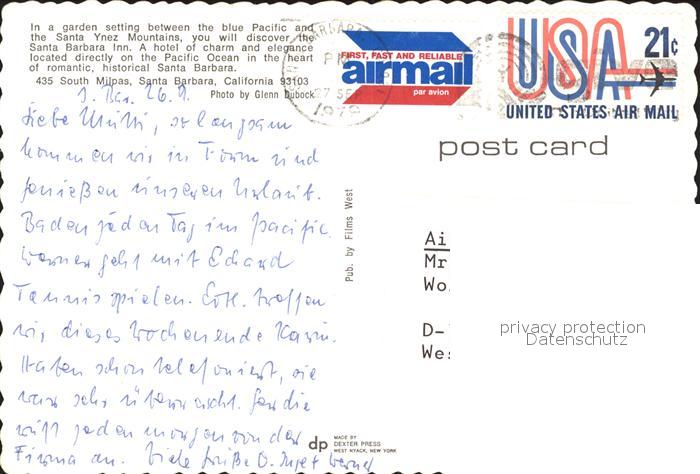 In a garden setting between the blue Pacific and
the Santa Ynez Mountains, you will discover the
Santa Barbara Inn. A hotel of charm and elegance
located directly on the Pacific Ocean in the heart
of romantic, historical Santa Barbara.
435 South Milpas, Santa Barbara, California 93103
Photo by Glenn Dubock
PM
27 SEP
1972
FIRST, FAST AND RELIABLE
airmail
par avion
USA 21¢
UNITED STATES AIR MAIL
post card
S. Bar. 26.9.
Liebe Mutti, so langsam
kommen wir in Form und
genießen unseren Urlaub.
Baden jeden Tag im Pacific.
Werner geht mit Eckard
Tennis spielen. Evtl. treffen
wir dieses Wochenende Karin.
Haben schon telefoniert, sie
war sehr überrascht. Gerdie
ruft jeden morgen von der
Firma an. Viele Grüße D. Inge + Werner
Pub. by Films West
Ai
Mr
Wo
D-
Wes
privacy protection
Datenschutz
dp
MADE BY
DEXTER PRESS
WEST NYACK, NEW YORK